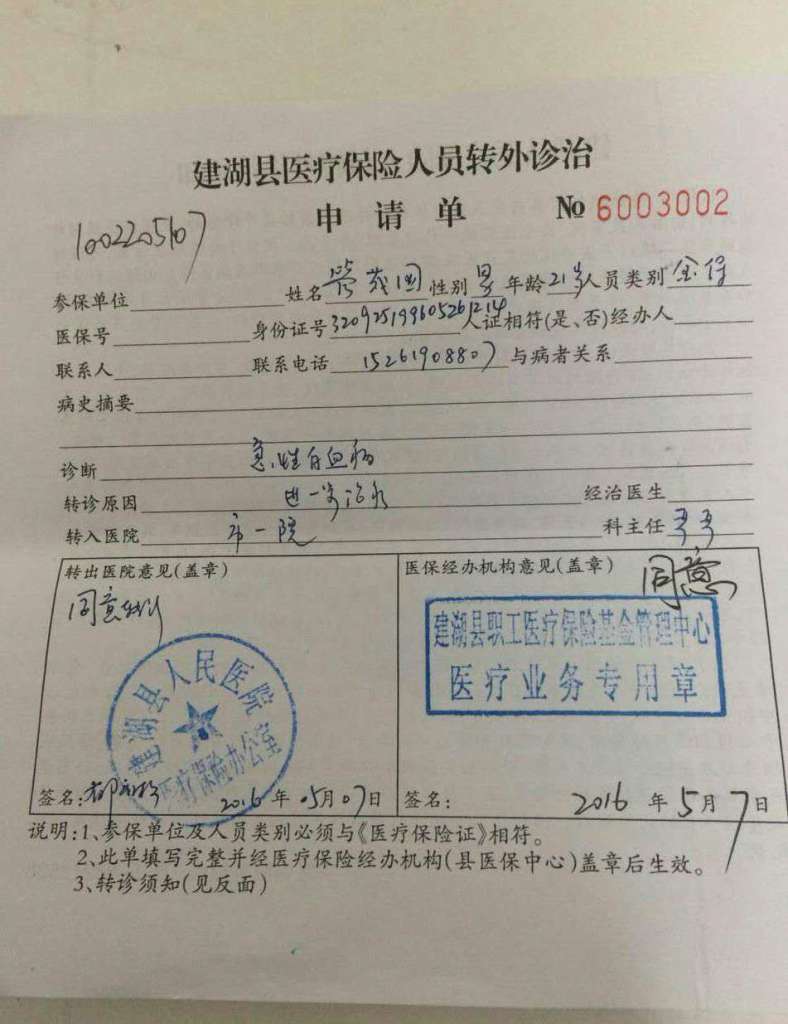 建湖县医疗保险人员转外诊治
申请单 № 6003002
1002205107
参保单位 姓名 茂国 性别 男 年龄 21岁 人员类别
医保号 身份证号 320925199605261214 人证相符(是、否)经办人
联系人 联系电话 15261908807 与病者关系
病史摘要
诊断 急性白血病
转诊原因 进一步治疗 经治医生
转入医院 市一院 科主任
转出医院意见(盖章)
同意转
建湖县人民医院
医疗保险办公室
签名: 2016年05月07日
医保经办机构意见(盖章)
同意
建湖县职工医疗保险基金管理中心
医疗业务专用章
签名: 2016年5月7日
说明:1、参保单位及人员类别必须与《医疗保险证》相符。
2、此单填写完整并经医疗保险经办机构(县医保中心)盖章后生效。
3、转诊须知(见反面)